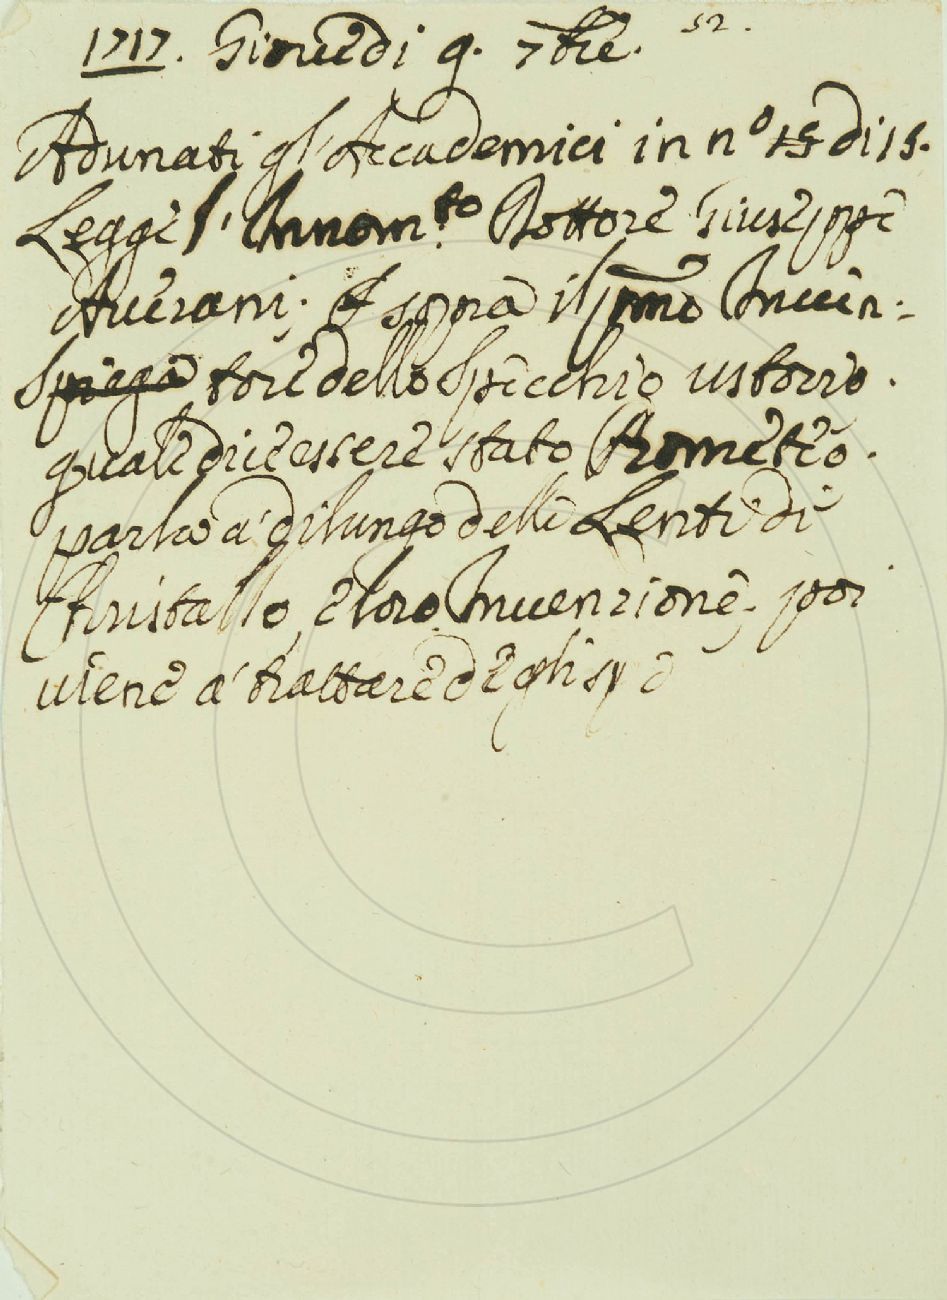 1717. Giouedi 9. 7bre. 52.
Adunati gl' Accademici in n° 15 di 15.
Legge l' Innom.to Dottore Giuseppe
Auerani. E sopra il pmo Inuen-
Spiega tore dello Specchio ustorio.
quale dice essere stato Prometeo.
parla a' dilungo delle Lenti di
Christallo, e loro Inuenzione, poi
uiene a' trattare degli spe